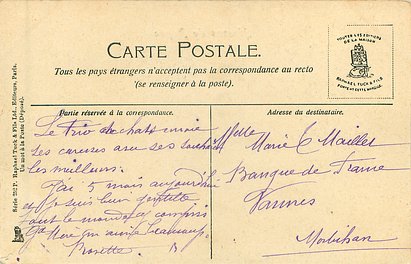 CARTE POSTALE.
Tous les pays étrangers n'acceptent pas la correspondance au recto
(se renseigner à la poste).
TOUTES LES EDITIONS
DE LA MAISON
RAPHAEL TUCK & FILS
PORTENT CETTE MARQUE.
Série 762 P. Raphael Tuck & Fils Ltd., Editeurs, Paris.
Un mot à la Poste (Déposé).
Partie réservée à la correspondance.
Le trio de chats envoie
ses caresses avec ses souhaits
les meilleurs.
J'ai 5 mois aujourd'hui
suis bien gentille
tout le monde y compris
qui aime beaucoup
Rosette
Adresse du destinataire.
Melle Marie Maillet
Banque de France
Vannes
Morbihan